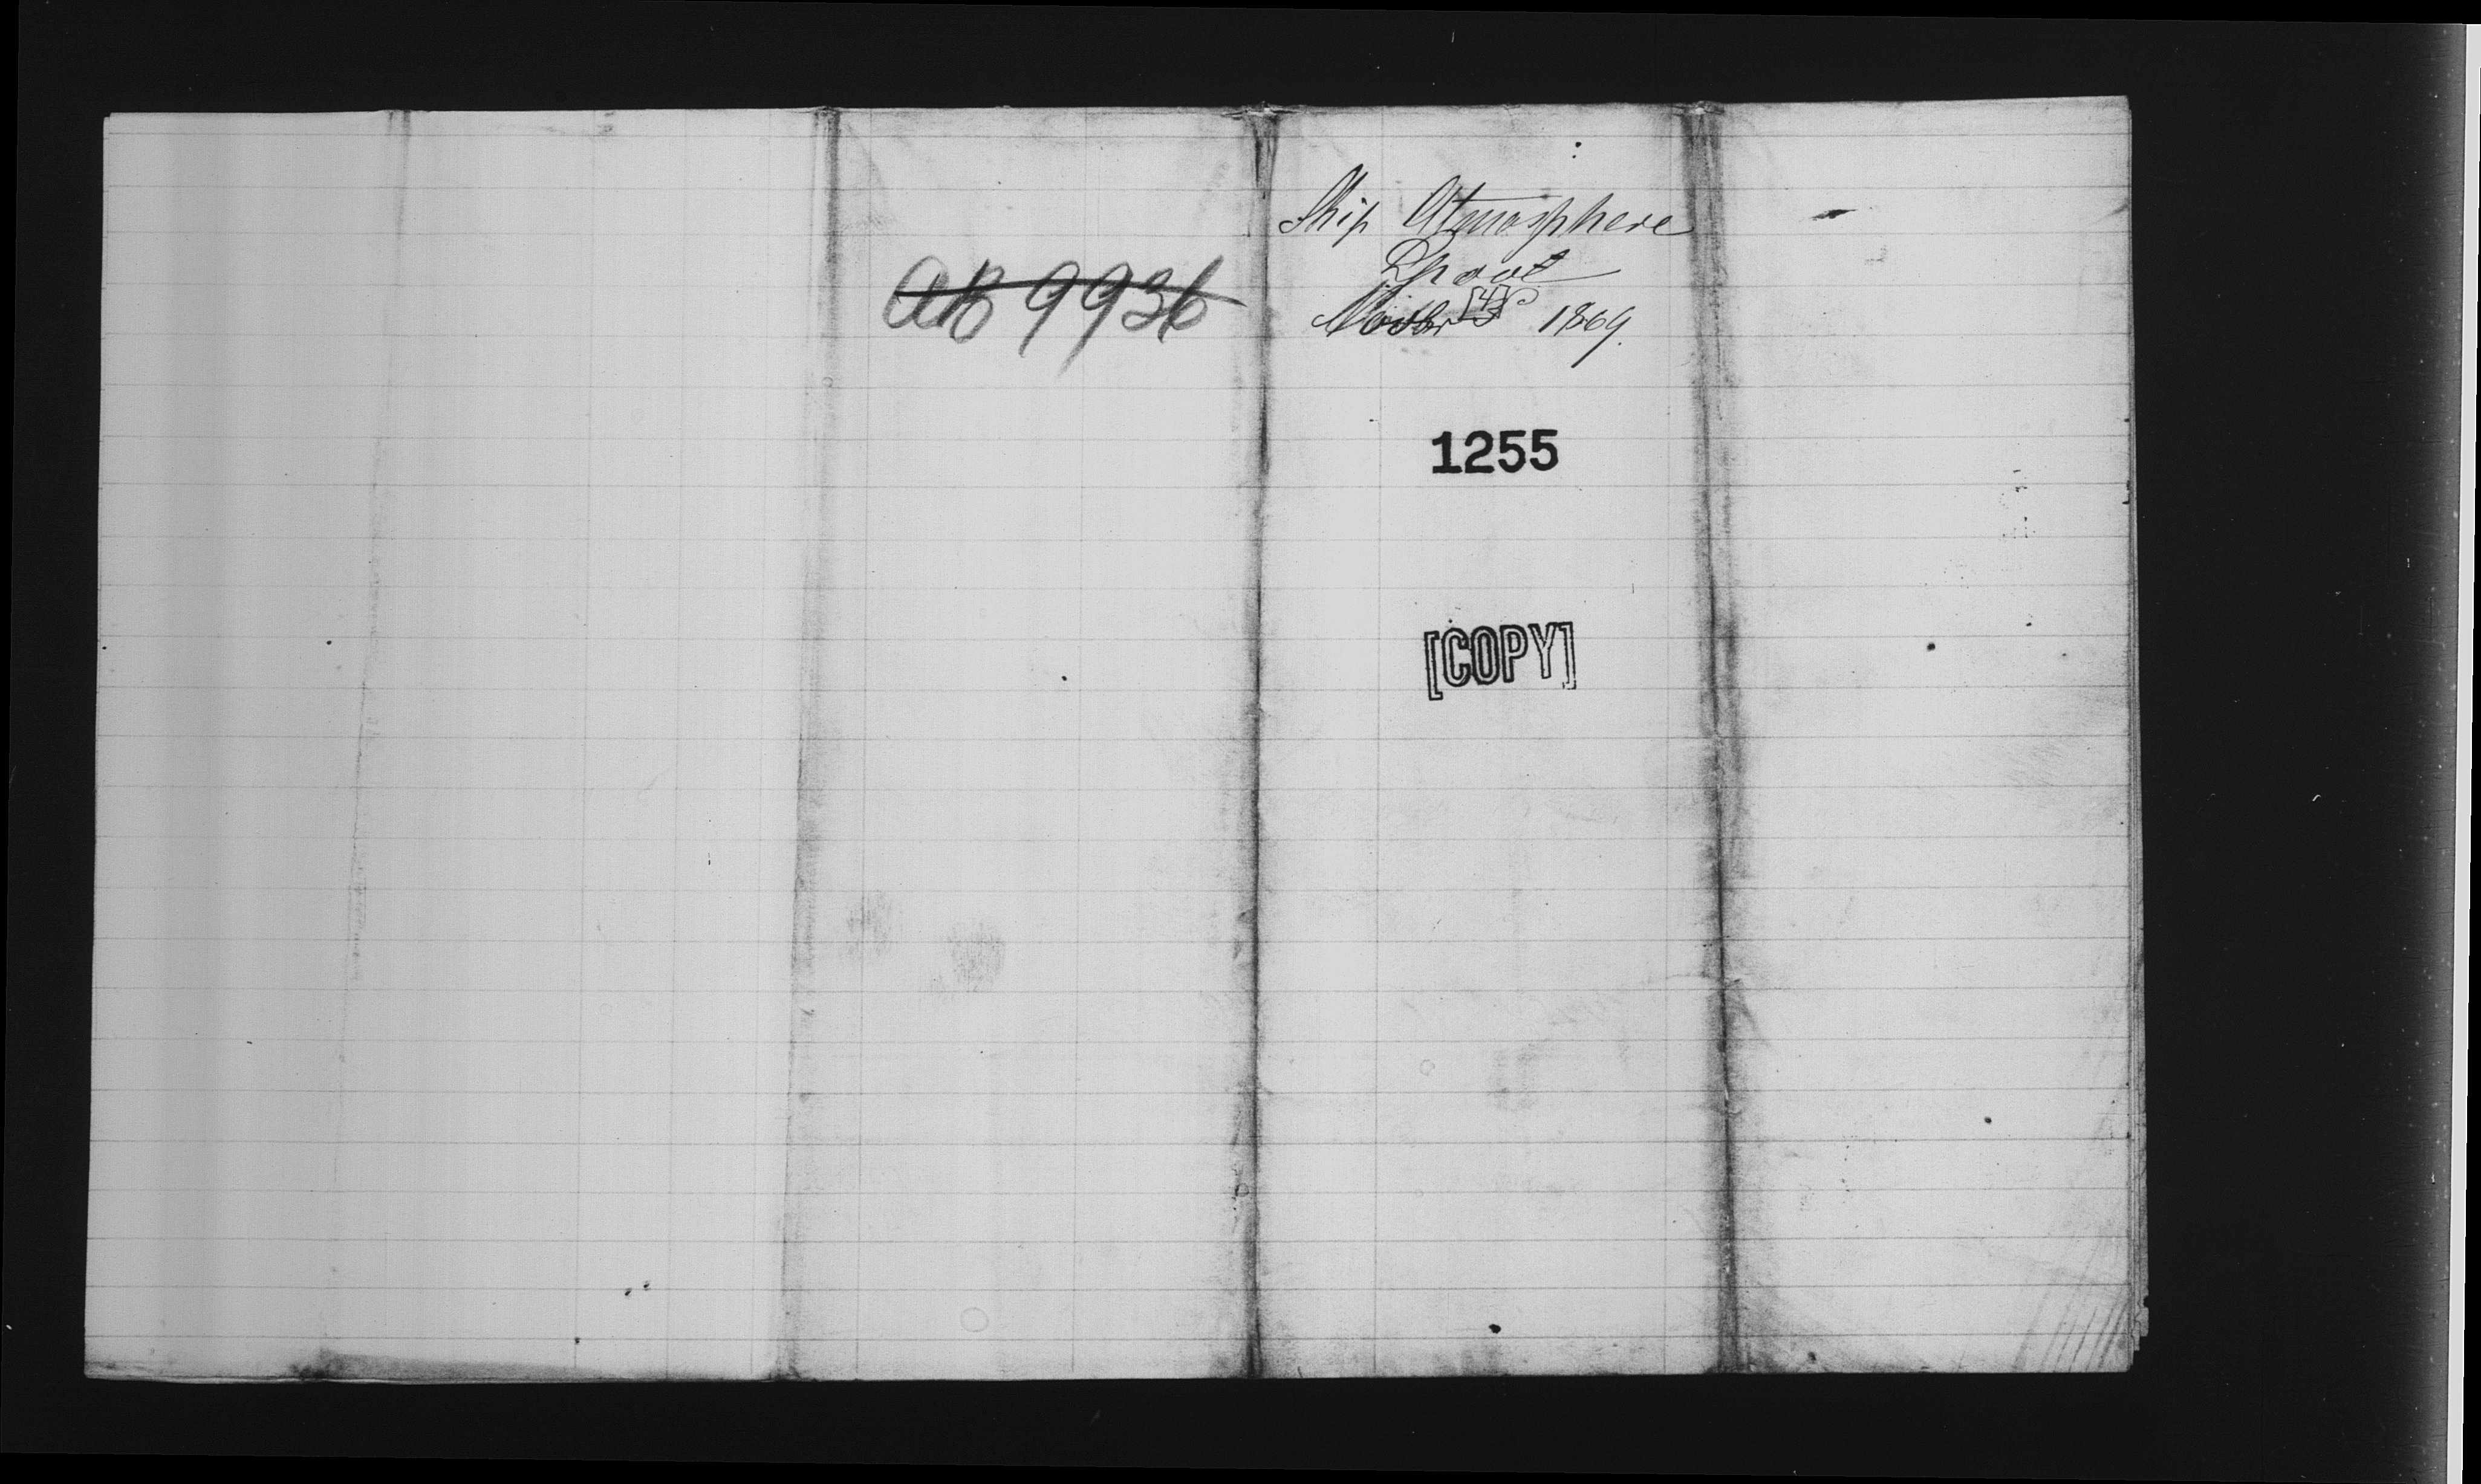 AB 9936
Ship Atmosphere
Sproat
Novbr [4] 1869.
1255
[COPY]